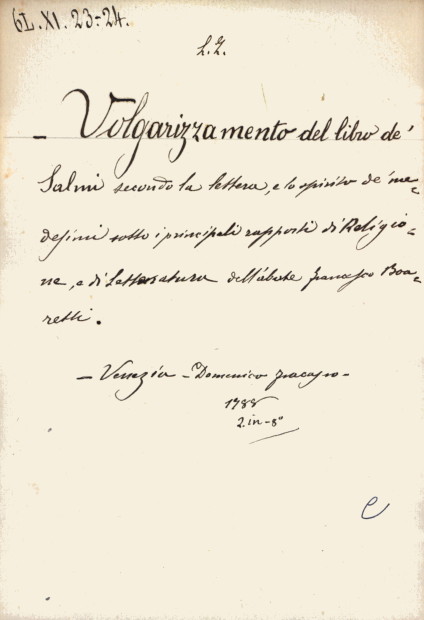 6L. XI. 23-24.
L.I.
– Volgarizzamento del libro de'
Salmi secondo la lettera, e lo spirito de' me-
desimi sotto i principali rapporti di Religio-
ne, e di Letteratura dell'abate francesco Boa-
retti.
– Venezia – Domenico fracasso –
1788
2. in-8º
e